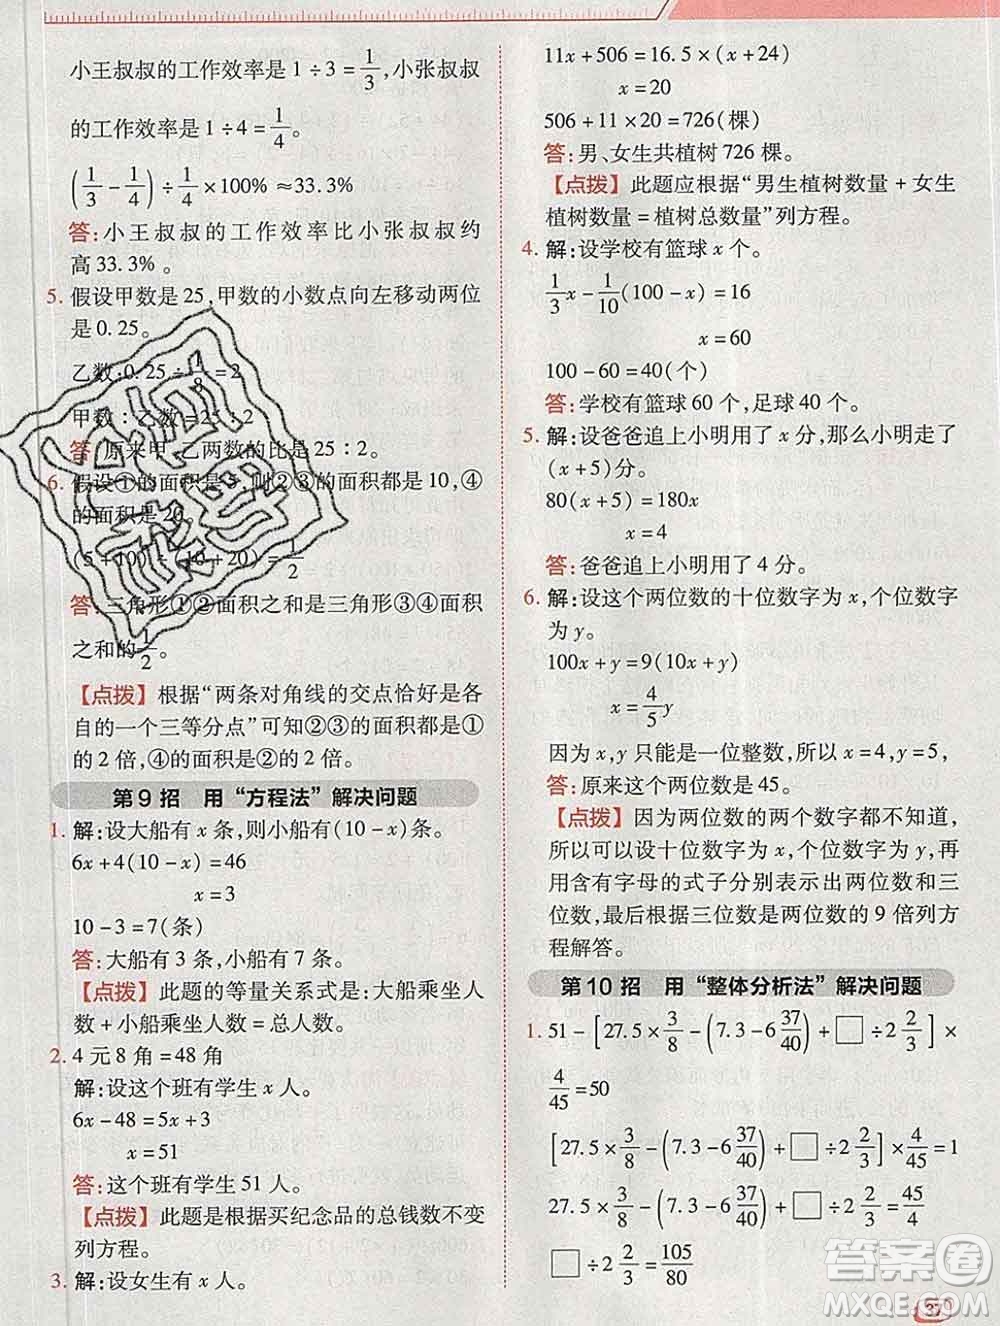 小王叔叔的工作效率是 1÷3=1/3,小张叔叔
的工作效率是 1÷4=1/4。
(1/3-1/4)÷1/4×100%≈33.3%
答:小王叔叔的工作效率比小张叔叔约
高 33.3%。
5. 假设甲数是 25,甲数的小数点向左移动两位
是 0.25。
乙数:0.25÷1/8=2
甲数:乙数=25:2
答:原来甲、乙两数的比是 25:2。
6. 假设①的面积是 5,则②③的面积都是 10,④
的面积是 20。
(5+10)÷(10+20)=1/2
答:三角形①②面积之和是三角形③④面积
之和的1/2。
【点拨】根据“两条对角线的交点恰好是各
自的一个三等分点”可知②③的面积都是①
的 2 倍,④的面积是②的 2 倍。
第 9 招 用“方程法”解决问题
1. 解:设大船有 x 条,则小船有(10-x)条。
6x+4(10-x)=46
x=3
10-3=7(条)
答:大船有 3 条,小船有 7 条。
【点拨】此题的等量关系式是:大船乘坐人
数+小船乘坐人数=总人数。
2. 4 元 8 角=48 角
解:设这个班有学生 x 人。
6x-48=5x+3
x=51
答:这个班有学生 51 人。
【点拨】此题是根据买纪念品的总钱数不变
列方程。
3. 解:设女生有 x 人。
11x+506=16.5×(x+24)
x=20
506+11×20=726(棵)
答:男、女生共植树 726 棵。
【点拨】此题应根据“男生植树数量+女生
植树数量=植树总数量”列方程。
4. 解:设学校有篮球 x 个。
1/3x-1/10(100-x)=16
x=60
100-60=40(个)
答:学校有篮球 60 个,足球 40 个。
5. 解:设爸爸追上小明用了 x 分,那么小明走了
(x+5)分。
80(x+5)=180x
x=4
答:爸爸追上小明用了 4 分。
6. 解:设这个两位数的十位数字为 x,个位数字
为 y。
100x+y=9(10x+y)
x=4/5y
因为 x,y 只能是一位整数,所以 x=4,y=5,
答:原来这个两位数是 45。
【点拨】因为两位数的两个数字都不知道,
所以可以设十位数字为 x,个位数字为 y,再
用含有字母的式子分别表示出两位数和三
位数,最后根据三位数是两位数的 9 倍列方
程解答。
第 10 招 用“整体分析法”解决问题
1. 51-[27.5×3/8-(7.3-6 37/40)+□÷2 2/3]×
4/45=50
[27.5×3/8-(7.3-6 37/40)+□÷2 2/3]×4/45=1
27.5×3/8-(7.3-6 37/40)+□÷2 2/3=45/4
□÷2 2/3=105/80
37
答案圈
MXQE.COM